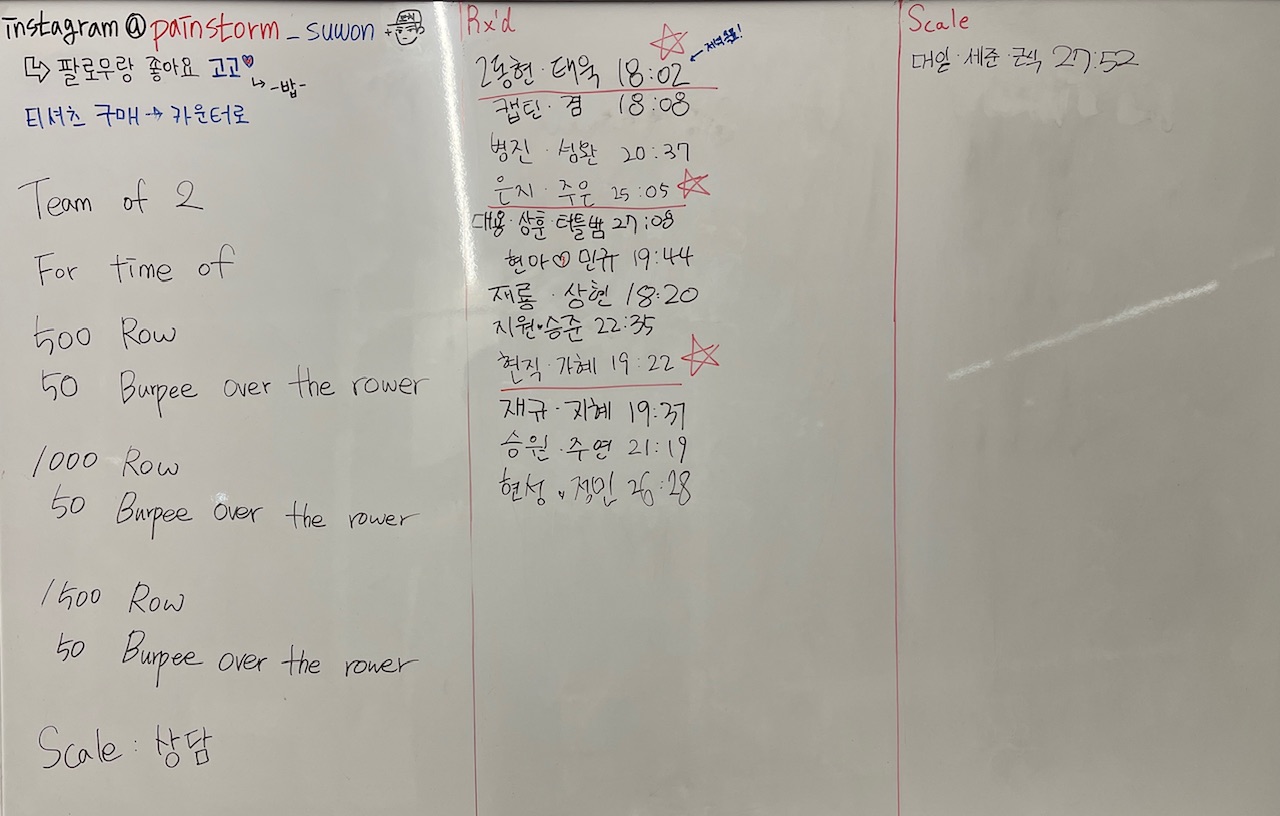 instagram@painstorm_suwon
팔로우랑 좋아요 고고
-밥-
티셔츠 구매→카운터로
Team of 2
For time of
500 Row
50 Burpee over the rower
1000 Row
50 Burpee over the rower
1500 Row
50 Burpee over the rower
Scale : 상담
Rx'd
2동현·태욱 18:02
캡틴·겸 18:08
병진·성완 20:37
은지·주은 25:05
대용·상훈·터틀밤 27:08
현아♡민규 19:44
재룡·상현 18:20
지원·승준 22:35
현직·가혜 19:22
재규·지혜 19:37
승원·주연 21:19
현성·정민 26:28
Scale
대일·세준·근식 27:52